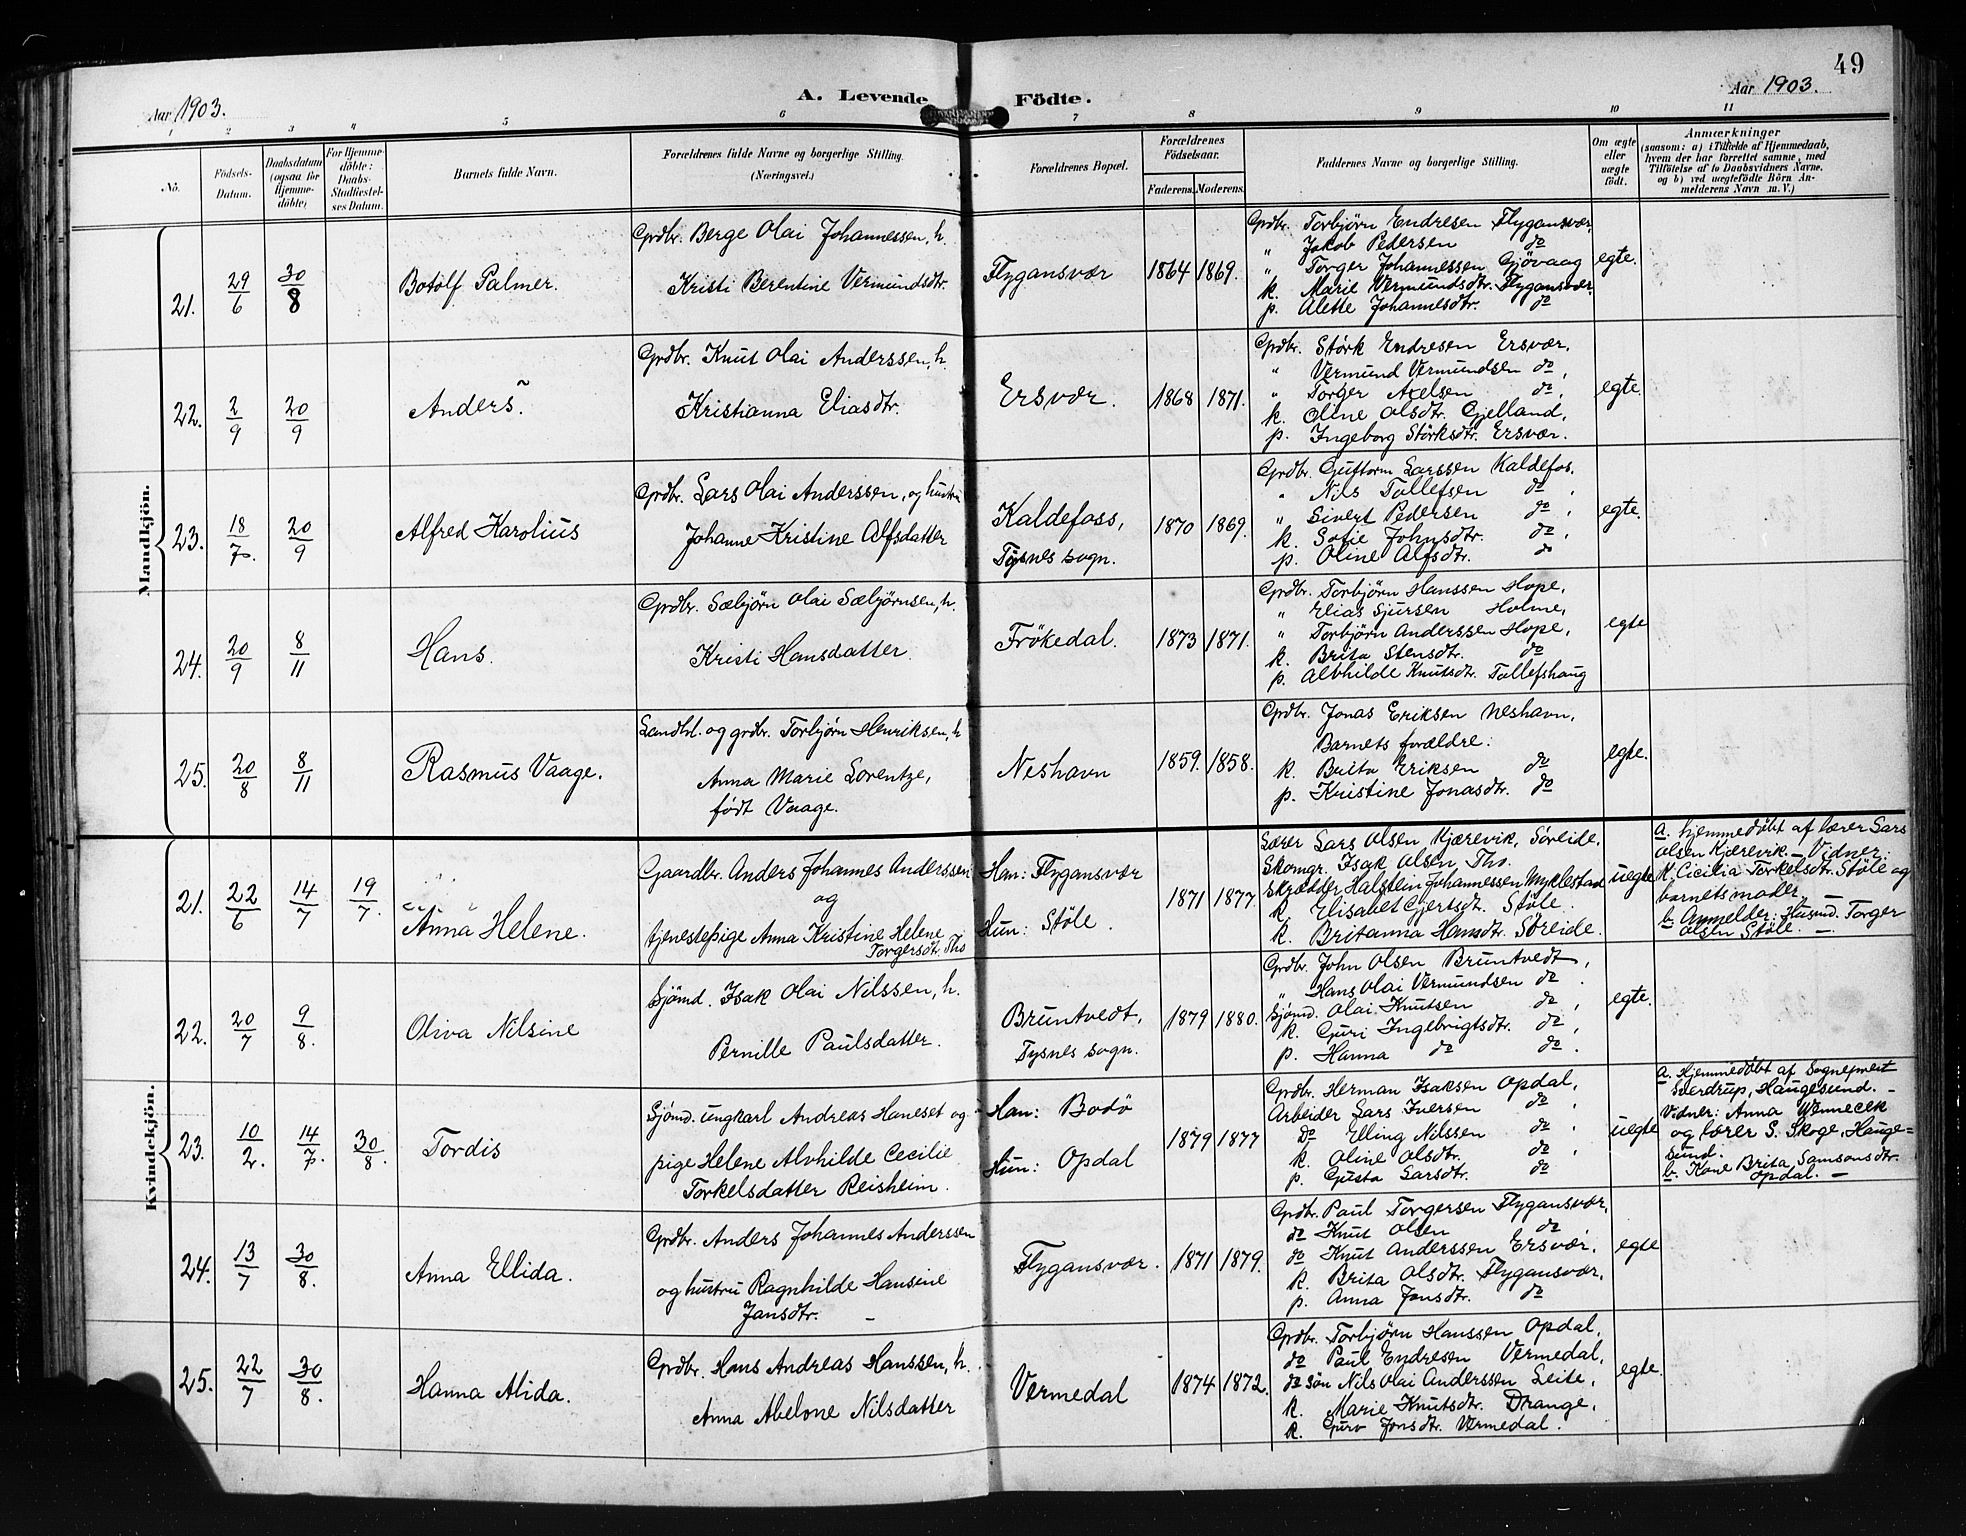 49
Aar 1903.
A. Levende Födte.
Aar 1903.
1 2 3 4 5 6 7 8 9 10 11
No.
Födsels-
Datum.
Daabsdatum
(ogsaa for
Hjemme-
döbte)
For Hjemme-
döbte:
Daabs-
Stadfæstel-
ses Datum.
Barnets fulde Navn.
Forældrenes fulde Navne og borgerlige Stilling.
(Næringsvei.)
Forældrenes Bopæl.
Forældrenes
Födselsaar.
Faderens. Moderens.
Faddernes Navne og borgerlige Stilling.
Om ægte
eller
uægte
födt.
Anmærkninger
(saasom: a) i Tilfælde af Hjemmedaab,
hvem der har forrettet samme, med
Tilföielse af to Daabsvidners Navne,
og b) ved uægtefödte Börn An-
melderens Navn m. V.)
Mandkjön.
21.
29/6
30/8
Botolf Palmer.
Grdbr. Berge Olai Johannessen, h.
Kristi Berentine Vermundsdtr.
Flygansvær
1864 1869.
Grdbr. Torbjørn Endresen Flygansvær.
" Jakob Pedersen do
" Torger Johannessen Gjövaag
k. Marie Vermundsdtr. Flygansvær.
p. Alette Johannesdtr. do
egte.
22.
2/9
20/9
Anders.
Grdbr. Knut Olai Anderssen, h.
Kristianna Eliasdtr.
Ersvær.
1868 1871.
Grdbr. Störk Endresen Ersvær.
" Vermund Vermundsen do,
" Torger Axelsen do,
k. Oline Olsdtr. Gjelland,
p. Ingeborg Störksdtr. Ersvær.
egte.
23.
18/7.
20/9
Alfred Karolius
Grdbr. Lars Olai Anderssen, og hustru
Johanne Kristine Alfsdatter
Kaldefoss,
Tysnes sogn.
1870 1869.
Grdbr. Guttorm Larssen Kaldefos.
" Nils Tollefsen do,
" Sivert Pedersen do,
k. Sofie Johnsdtr. do,
p. Oline Alfsdtr. do
egte.
24.
20/9
8/11
Hans.
Grdbr. Sæbjörn Olai Sæbjörnsen, h.
Kristi Hansdatter.
Frökedal.
1873 1871.
Grdbr. Torbjørn Hanssen Hope,
" Elias Sjursen Holme,
" Torbjørn Anderssen Hope,
k. Brita Stensdtr. do
p. Alvhilde Knutsdtr. Tollefshaug
egte
25.
20/8
8/11
Rasmus Vaage.
Landhl. og grdbr. Torbjørn Henriksen, h
Anna Marie Lorentze,
født Vaage.
Neshavn
1859. 1858.
Grdbr. Jonas Eriksen Neshavn,
Barnets forældre:
k. Brita Eriksen do
p. Kristine Jonasdtr. do
egte.
Kvindekjön.
21.
22/6
14/7
19/7.
Anna Helene.
Gaardbr. Anders Johannes Anderssen
og
tjenestepige Anna Kristine Helene
Torgersdtr. Tho
Han: Flygansvær
Hun: Støle.
1871 1877
Lærer Lars Olsen Kjærevik, Søreide.
Skomgr. Isak Olsen Tho.
Skrædder Halstein Johannessen Myklestad
k. Elisabet Gjertsdt. Støle.
k. Britanna Hansdtr. Søreide.
uegte
a. hjemmedøbt af lærer Lars
Olsen Kjærevik. — Vidner:
K. Cicilia Torkelsdtr. Støle og
barnets moder —
b. Anmelder: Husmd. Torger
Olsen Støle. —
22.
20/7
9/8.
Oliva Nilsine
Sjömd. Isak Olai Nilssen, h.
Pernille Paulsdatter.
Bruntvedt,
Tysnes sogn.
1879 1880.
Grdbr. John Olsen Bruntvedt,
" Hans Olai Vermundsen do.
Sjömd. Olai Knutsen do,
k. Guri Ingebrigtsdtr. do,
p. Hanna do do.
egte.
23.
10/2.
14/7.
30/8.
Tordis
Sjömd. ungkarl Andreas Haneset og
pige Helene Alvhilde Cecilie
Torkelsdatter Reisheim.
Han: Bodö
Hun: Opdal
1879 1877
Grdbr. Herman Isaksen Opdal,
Arbeider Lars Iversen do,
Do Elling Nilssen do,
k. Oline Olsdtr. do,
p. Gusta Larsdtr. do
uegte
a. Hjemmedöbt af Sogneprest
Sverdrup, Haugesund. —
Vidner: Anna Wennecek
og lærer S. Skoge, Hauge-
sund.
b. Kone Brita Samsonsdtr.
Opdal. —
24.
13/7
30/8.
Anna Ellida.
Grdbr. Anders Johannes Anderssen
og hustru Ragnhilde Hansine
Jansdtr. —
Flygansvær.
1871 1879.
Grdbr. Paul Torgersen Flygansvær,
do Knut Olsen do,
do Knut Anderssen Ersvær.
k. Brita Olsdtr. Flygansvær,
p. Anna Jonsdtr. do
egte
25.
22/7
30/8.
Hanna Alida.
Grdbr. Hans Andreas Hanssen, h.
Anna Abelone Nilsdatter
Vermedal
1874 1872.
Grdbr. Torbjørn Hanssen Opdal,
do Paul Endresen Vermedal,
do Sön Nils Olai Anderssen Leite,
k. Marie Knutsdtr. Drange,
k. Guro Jonsdtr. Vermedal.
egte.